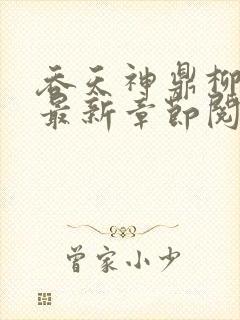 吞天神鼎柳
最新章節閱
曾家小少